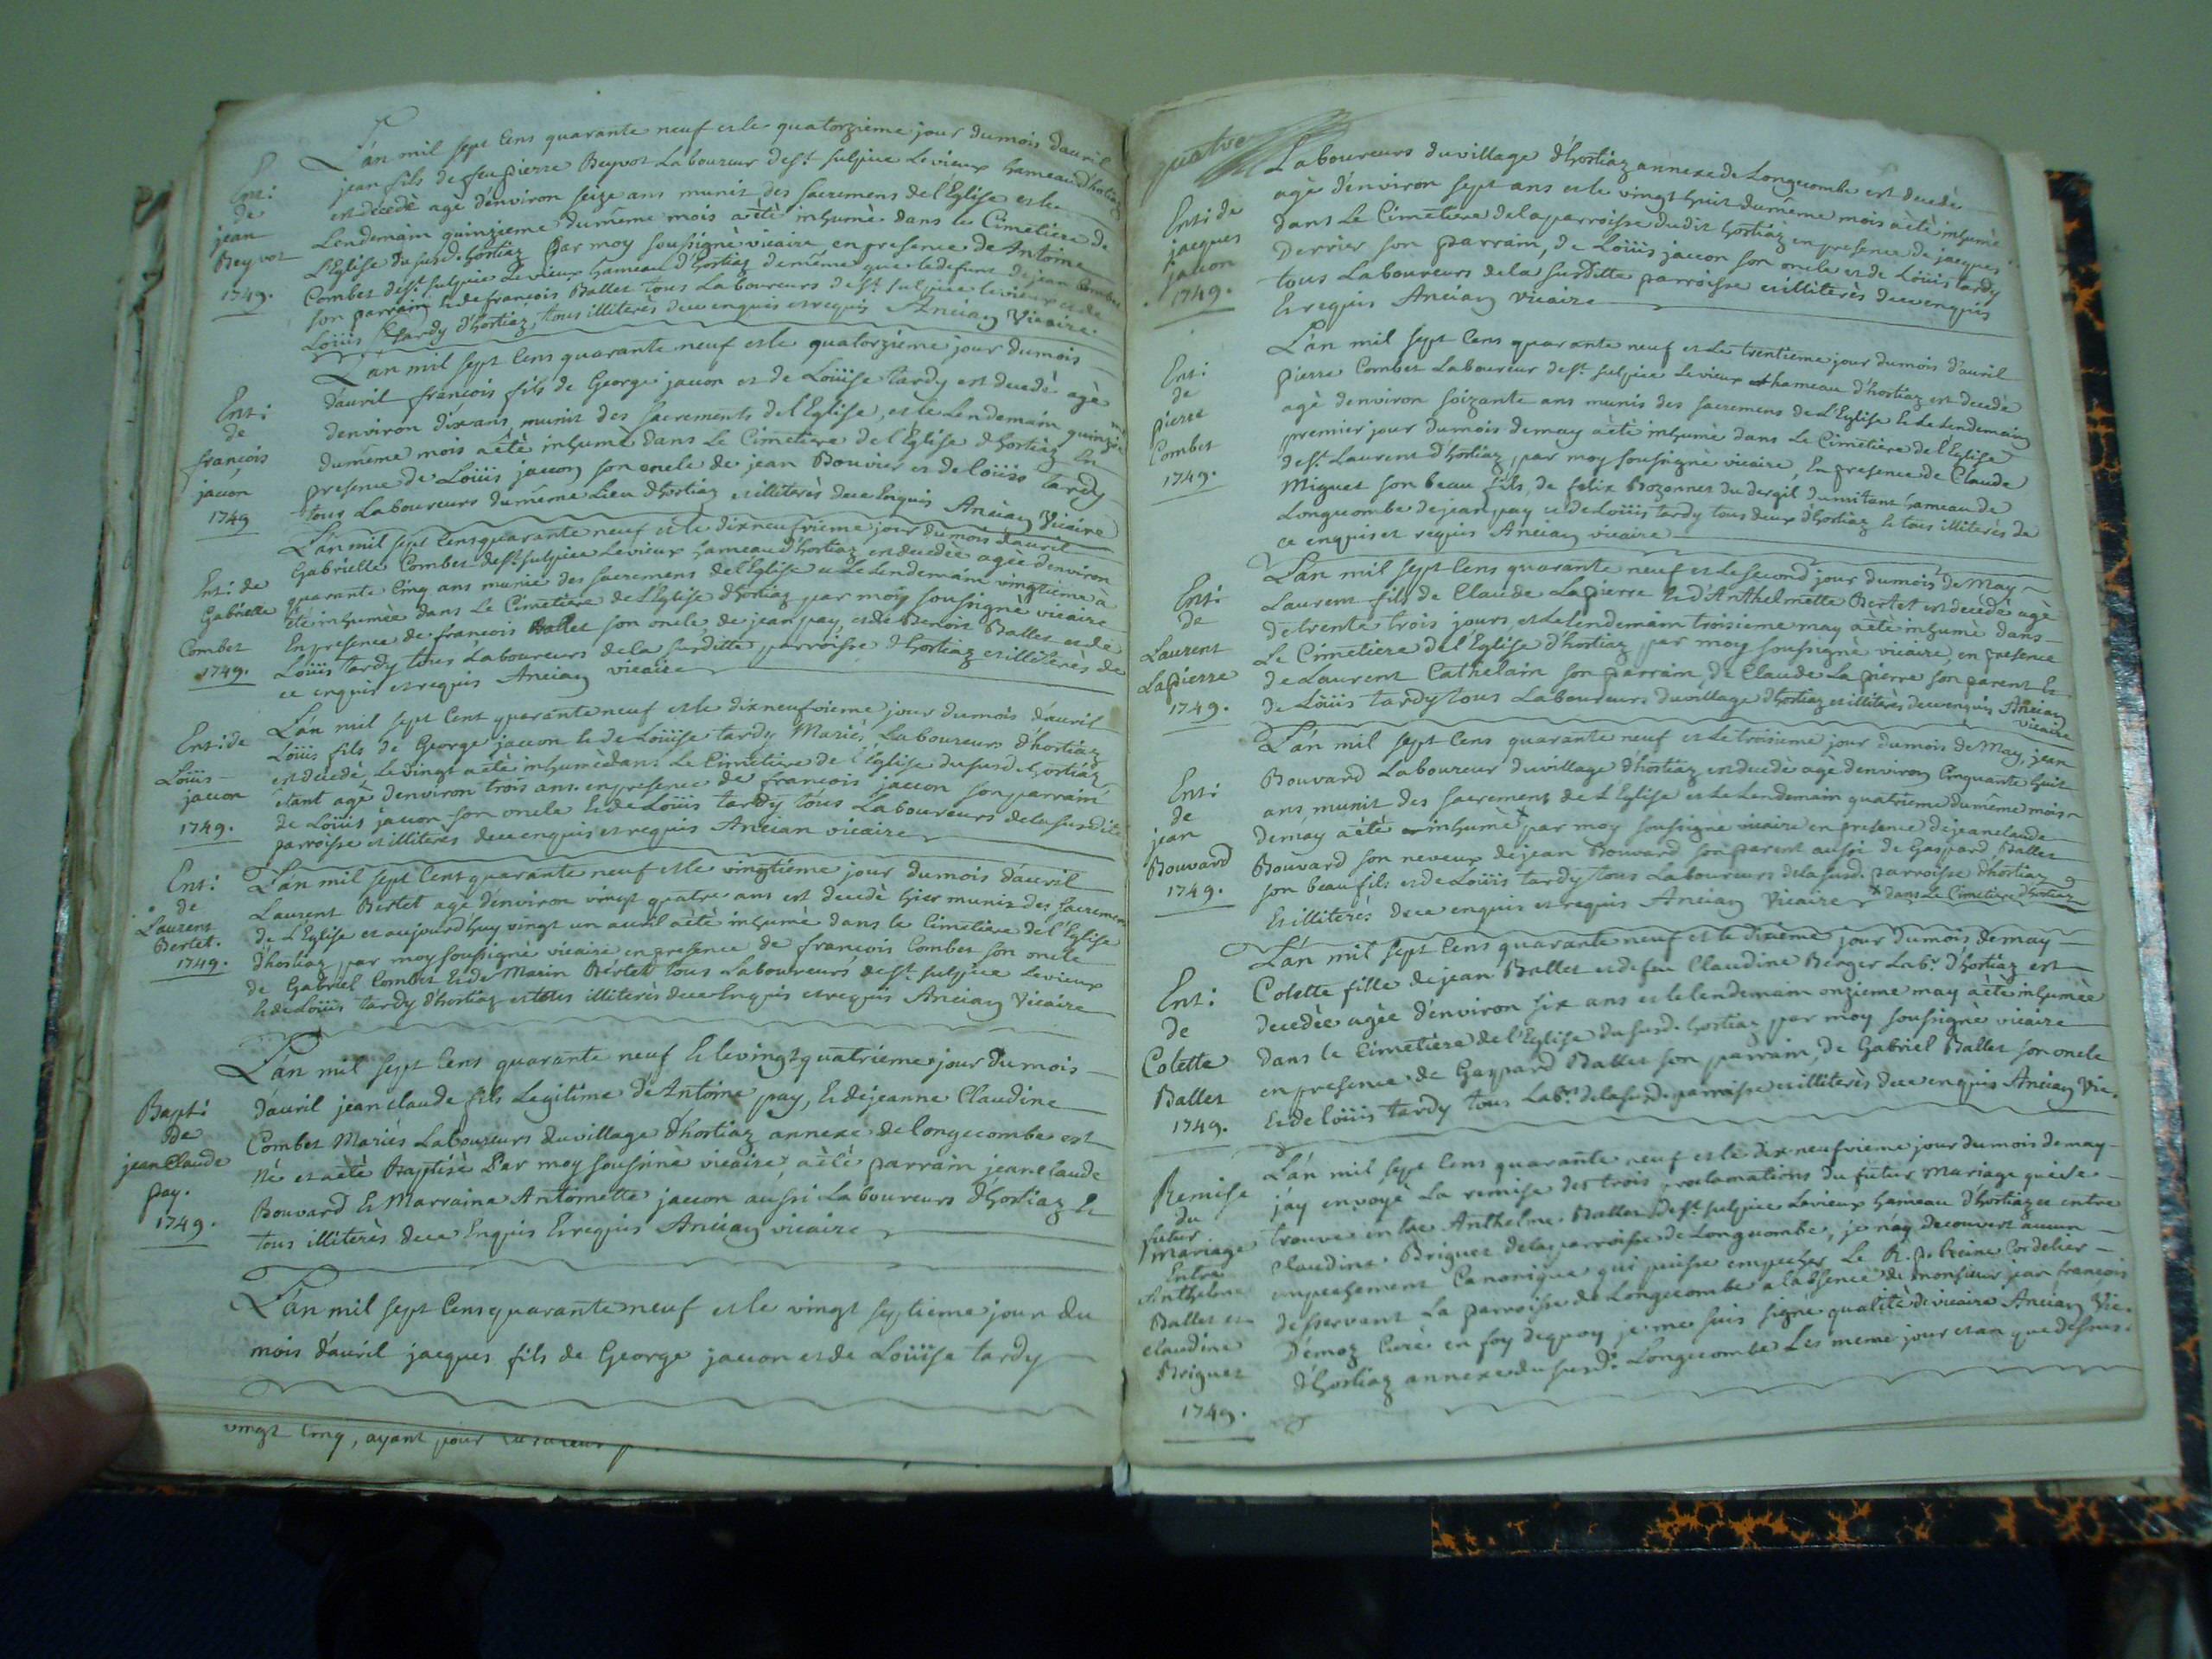 L'an mil sept Cens quarante neuf et le quatorzieme jour du mois d'avril
jean fils de feu pierre Beyvot Laboureur de st. sulpice Le vieux hameau d'hortiaz
est décedé agé d'environ seize ans munit des sacremens de l'Eglise et le
Lendemain quinzieme du même mois a èté inhumé dans le Cimetiere de
L'Eglise du susd. hortiaz par moy soussigné vicaire en presence de Antoine
Combet de st. sulpice Le vieux hameau d'hortiaz de même que le defunt de jean Combet
son parrain et de françois Ballet tous Laboureurs de st. sulpice le vieux et de
Loüis tardy d'hortiaz, tous illiterés de ce enquis et requis Ancian Vicaire.
Ent:
de
jean
Beyvot
1749.
L'an mil sept Cens quarante neuf et le quatorzieme jour du mois
d'avril françois fils de George jacon et de Loüise tardy est decedé agé
d'environ dix ans munit des sacrements de l'Eglise, et le Lendemain quinzie me
du même mois a èté inhumé dans Le Cimetiere de l'Eglise d'hortiaz En
presence de Loüis jacon son oncle de jean Bouvier et de loüis tardy
tous Laboureurs du même Lieu d'hortiaz et illiterés de ce Enquis Ancian Vicaire
Ent:
de
françois
jacon
1749
L'an mil sept Cens quarante neuf et le dix neufvieme jour du mois d'avril
Gabrielle Combet de st. sulpice Le vieux hameau d'hortiaz est decedée agée d'environ
quarante Cinq ans munie des sacremens de l'Eglise et Le Lendemain vingtieme a
èté inhumée dans Le Cimetiere de l'Eglise d'hortiaz par moy soussigné vicaire
En presence de françois Ballet son oncle, de jean pay, et de Benoit Ballet et de
Loüis tardy tous Laboureurs de la susditte parroisse d'hortiaz et illiterés de
ce enquis et requis Ancian vicaire
Ent: de
Gabrielle
Combet
1749.
L'an mil sept Cent quarante neuf et le dix neufvieme jour du mois d'avril
Loüis fils de George jacon et de Loüise tardy Mariés Laboureurs d'hortiaz
est decedé, Le vingt a èté inhumé dans Le Cimetiere de l'Eglise du susd. hortiaz
étant agé d'environ trois ans en presence de françois jacon son parrain
de Loüis jacon son oncle et de Loüis tardy tous Laboureurs de la susditte
parroisse et illiterés de ce enquis et requis Ancian vicaire
Ent: de
Loüis
jacon
1749.
L'an mil sept Cent quarante neuf et le vingtiéme jour du mois d'avril
Laurent Bertet agé d'environ vingt quatre ans est decedé hier munit des sacremens
de L'Eglise et aujourd'huy vingt un avril a èté inhumé dans le Cimetiere de l'Eglise
d'hortiaz par moy soussigné vicaire en presence de françois Combet son oncle
de Gabriel Combet et de Marin Bertet tous Laboureurs de st. sulpice Le vieux
et de Loüis tardy d'hortiaz et tous illiterés de ce Enquis et requis Ancian Vicaire
Ent:
de
Laurent
Bertet.
1749.
L'an mil sept Cens quarante neuf et le vingt quatrieme jour du mois
d'avril jean claude fils Legitime de Antoine pay, et de jeanne Claudine
Combet Mariés Laboureurs du village d'hortiaz annexe de longecombe est
Né et a èté Baptisé Par moy soussiné vicaire, a èté parrain jean claude
Bouvard Et Marraine Antoinette jacon aussi Laboureurs d'hortiaz et
tous illiterés de ce Enquis Et requis Ancian vicaire
Bapt:
De
jean Claude
pay.
1749.
L'an mil sept Cens quarante neuf et le vingt septieme jour du
mois d'avril jacques fils de George jacon et de Loüise tardy
vingt Cinq, ayant pour
quatre
Laboureurs du village d'hortiaz annexe de Longecombe est decedé
agé d'environ sept ans et le vingt huit du même mois a èté inhumé
dans Le Cimetiere de la parroisse du dit hortiaz en presence de jacques
Derrier son parrain, de Loüis jacon son oncle et de Loüis tardy
tous Laboureurs de la susditte parroisse et illiterés de ce enquis
Et requis Ancian Vicaire
Ent: de
jacques
jacon
1749.
L'an mil sept Cens quarante neuf et Le trentieme jour du mois d'avril
pierre Combet Laboureur de st. sulpice Le vieux hameau d'hortiaz est decedé
agé d'environ soizante ans munis des sacremens de L'Eglise et Le Lendemain
premier jour du mois de may a èté inhumé dans Le Cimetiere de l'Eglise
de st. Laurent d'hortiaz par moy soussigné vicaire, En presence de Claude
Miguet son beau fils, de felix Bozonnet du dergil dumitant hameau de
Longecombe de jean pay et de Loüis tardy tous deux d'hortiaz et tous illiterés de
ce enquis et requis Ancian vicaire
Ent:
de
pierre
Combet
1749.
L'an mil sept Cens quarante neuf et Le second jour du mois De May
Laurent fils de Claude Lapierre et d'Anthelmette Bertet est decedé agé
de trente trois jours, et Le Lendemain troisieme may a èté inhumé dans
Le Cimetiere de l'Eglise d'hortiaz par moy soussigné vicaire, en presence
de Laurent Cathelain son parrain, de Claude La pierre son parent Et
de Loüis tardy tous Laboureurs du village d'hortiaz et illiterés de ce enquis Ancian
vicaire
Ent:
de
Laurent
Lapierre
1749.
L'an mil sept Cens quarante neuf et Le troisieme jour du mois de May, jean
Bouvard Laboureur du village d'hortiaz est decedé agé d'environ Cinquante huit
ans, munit des sacremens de L'Eglise et Le Lendemain quatrieme du même mois
de may a èté inhumé par moy soussigné vicaire en presence de jean claude
Bouvard son neveux de jean Bouvard son parent aussi de Gaspard Ballet
son beau fils et de Loüis tardy tous Laboureurs de la susd. parroisse d'hortiaz
Et illiterés de ce enquis et requis Ancian Vicaire x dans Le Cimetiere d'hortiaz
Ent:
de
jean
Bouvard
1749.
L'an mil sept Cens quarante neuf et le dixième jour du mois de may
Colette fille de jean Ballet et de feu Claudine Berger Labr. d'hortiaz est
decedée agée d'environ six ans et le lendemain onzieme may a èté inhumée
dans le Cimetiere de l'Eglise du susd. hortiaz par moy soussigné vicaire
en presence de Gaspard Ballet son parrain, de Gabriel Ballet son oncle
Et de loüis tardy tous Labrs. de la susd. parroisse et illiterés de ce enquis Ancian Vic.
Ent:
de
Colette
Ballet
1749.
L'an mil sept Cens quarante neuf et le dix neufvieme jour du mois de may
j'ay envoyé La remise des trois proclamations du futur mariage qui se
trouve entre Anthelme Ballet de st. sulpice Le vieux hameau d'hortiaz et entre
claudine Briguet de la parroisse de Longecombe, je n'ay decouvert aucun
empechement Canonique qui puisse empecher Le R. p. Cordelier
desservant La parroisse de Longecombe a l'absence de monsieur jean françois
D'émoz Curé en foy dequoy je me suis signé qualité de vicaire Ancian Vic.
d'hortiaz annexe du susd. Longecombe Les meme jour et an que dessus.
Remise
du
futur
mariage
Entre
Anthelme
Ballet et
claudine
Briguet
1749.